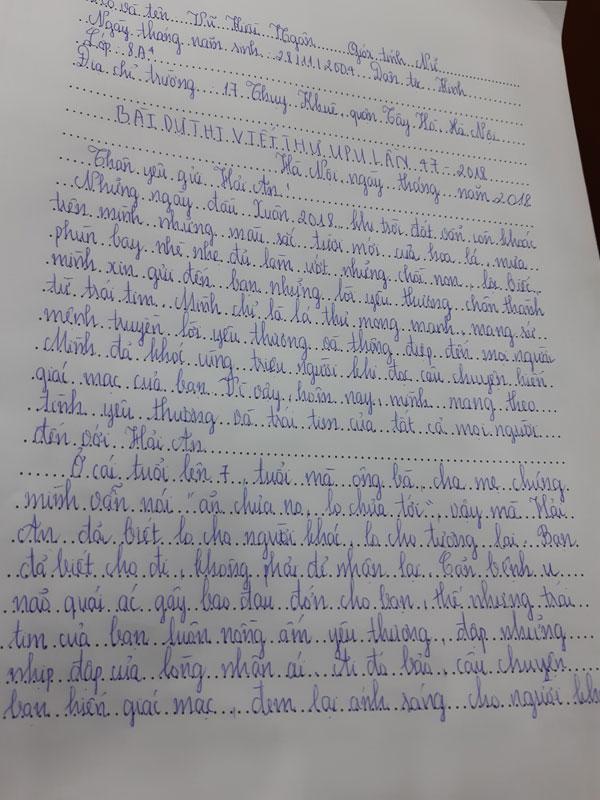 và tên Vũ Hoài Ngân Giới tính Nữ
Ngày tháng năm sinh 28/11/2004 Dân tộc Kinh
Lớp 8A4
Địa chỉ trường 17 Thuỵ Khuê, quận Tây Hồ, Hà Nội
BÀI DỰ THI VIẾT THƯ UPU LẦN 47 - 2018
Hà Nội, ngày tháng năm 2018
Thân yêu gửi Hải An!
Những ngày đầu Xuân 2018, khi trời đất vẫn còn khoác
trên mình những màu sắc tươi mới của hoa lá, mưa
phùn bay nhè nhẹ đủ làm ướt những chồi non, lộc biếc,
mình xin gửi đến bạn những lời yêu thương chân thành
từ trái tim. Mình chỉ là lá thư mong manh, mang sứ
mệnh truyền lời yêu thương và thông điệp đến mọi người
Mình đã khóc cùng triệu người khi đọc câu chuyện hiến
giác mạc của bạn. Vì vậy, hôm nay, mình mang theo
tình yêu thương và trái tim của tất cả mọi người
đến với Hải An
Ở cái tuổi lên 7, tuổi mà ông bà, cha mẹ chúng
mình vẫn nói "ăn chưa no, lo chưa tới", vậy mà Hải
An đã biết lo cho người khác, lo cho tương lai. Bạn
đã biết cho đi, không phải để nhận lại. Căn bệnh u
não quái ác gây bao đau đớn cho bạn, thế nhưng trái
tim của bạn luôn nồng ấm yêu thương, đập những
nhịp đập của lòng nhân ái. Ai đó bảo, câu chuyện
bạn hiến giác mạc, đem lại ánh sáng cho người